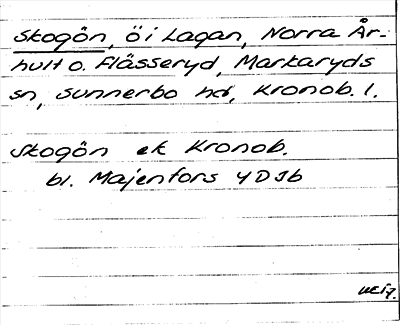 Skogön, ö i Lagan, Norra År-
hult o. Flässeryd, Markaryds
sn, Sunnerbo hd, Kronob. l.
Skogön ek Kronob.
bl. Majenfors 4D3b